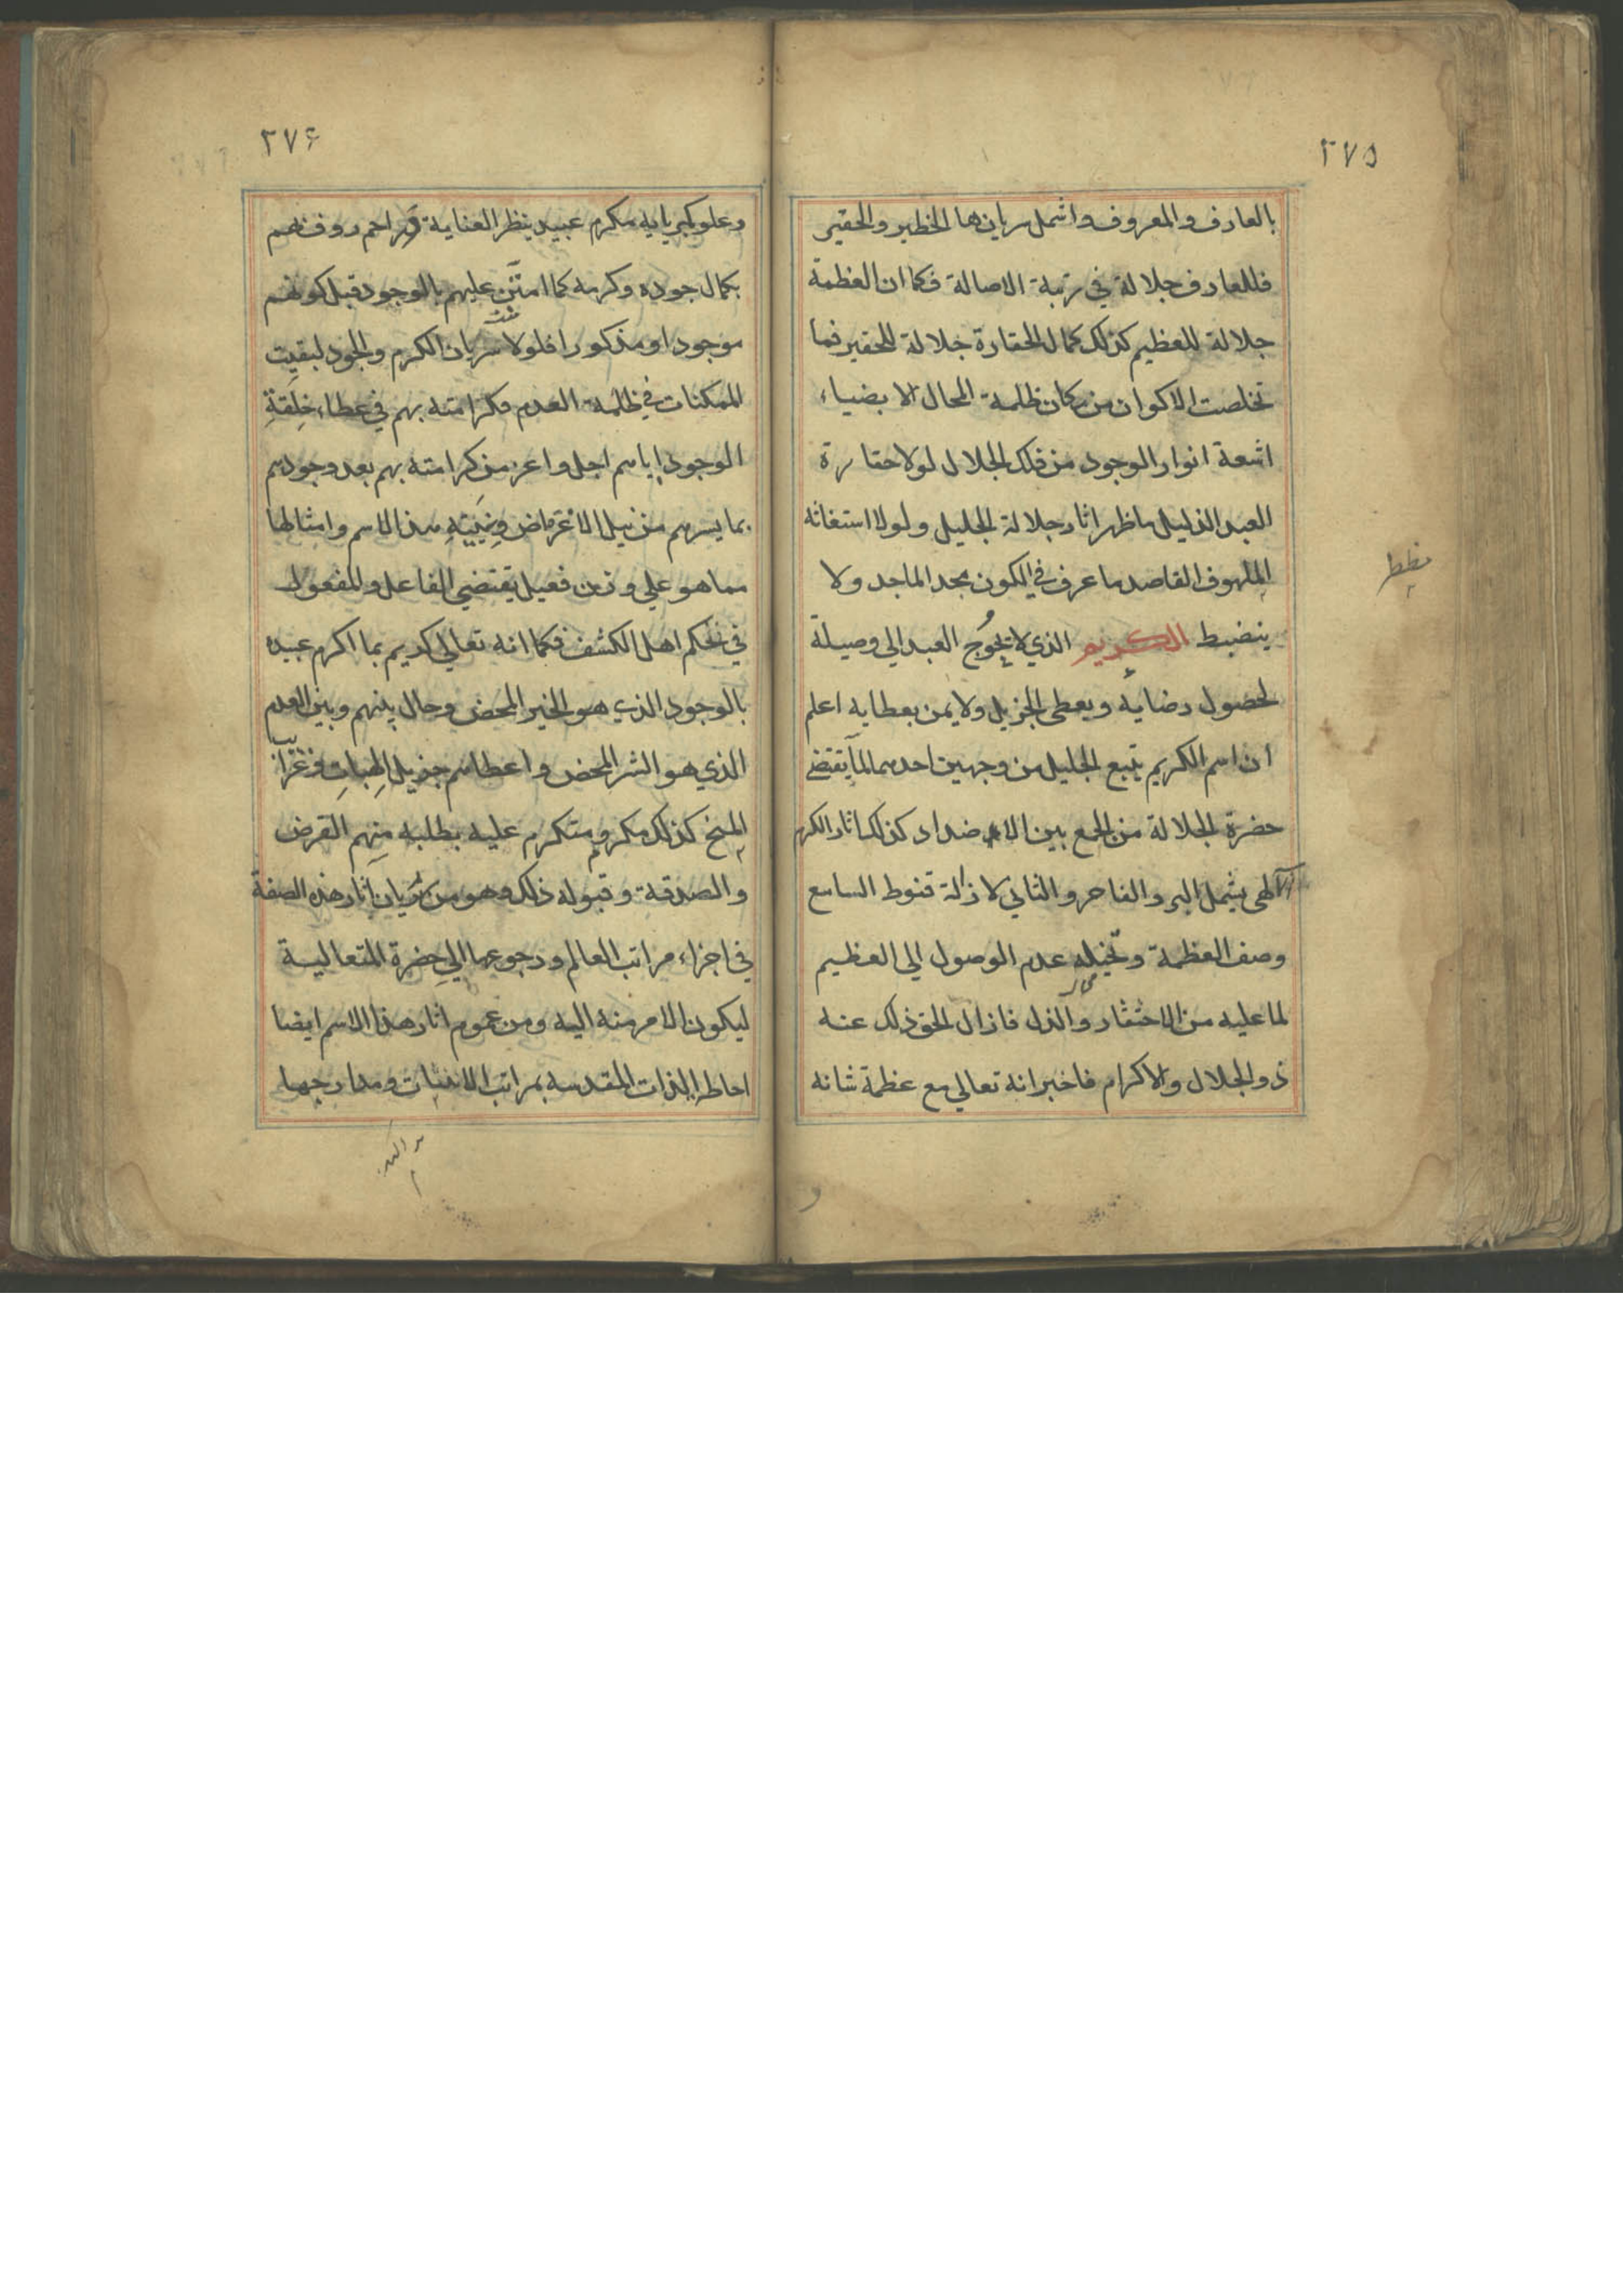 ٢٧٥
بالعارف والمعروف واشمل سريانها الخطير والحقير
فللعارف جلالة في رتبة الاصالة فكما ان العظمة
جلالة للعظيم كذلك كمال الحقارة جلالة للحقير فما
تخلصت الاكوان من مكان ظلمة المحال الا بضياء
اشعة انوار الوجود من فلك الجلال لولا حقارة
العبد الذليل ما ظهر اثار جلالة الجليل ولولا استغاثة
الملهوف القاصد ما عرف في الكون مجد الماجد ولا
ينضبط الكريم الذي لا يحوج العبد الي وصيلة
لحصول رضايه ويعطي الجزيل ولا يمن بعطايه اعلم
ان اسم الكريم يتبع الجليل من وجهين احدهما لما يقتضي
حضرة الجلالة من الجمع بين الاضداد كذلك اثار الكرم
الالهي يشمل البر والفاجر والثاني لازالة قنوط السامع
وصف العظمة وتخيله عدم الوصول الي العظيم
لما عليه من الاحتقار والذل فازال الحق ذلك عنه
ذو الجلال والاكرام فاخبر انه تعالي مع عظمة شانه
٢٧۶
وعلو كبريايه مكرم عبيده بنظر العناية راحم روف بهم
بكمال جوده وكرمه كما امتن عليهم بالوجود قبل كونهم
موجودا ومذكورا فلولا سريان الكرم والجود لبقيت
الممكنات في ظلمة العدم فكرامته بهم في عطاء خلقة
الوجود اياهم اجل واعز من كرامته بهم بعد وجودهم
بما يسرهم من نيل الاغراض وبنية هذا الاسم وامثالها
مما هو علي وزن فعيل يقتضي الفاعل والمفعول
في تحكم اهل الكشف فكما انه تعالي كريم بما اكرم عبيده
بالوجود الذي هو الخير المحض وحال بينهم وبين العدم
الذي هو الشر المحض واعطاهم جزيل الهبات وغرايب
المنح كذلك مكرم ومتكرم عليه بطلبه منهم القرض
والصدقة وقبوله ذلك وهو من سريان آثار هذه الصفة
في اجزاء مراتب العالم ورجوعها الي حضرة المتعالية
ليكون الامر منه اليه ومن عموم اثار هذا الاسم ايضا
احاطة الذات المقدسة بمراتب الاثبات ومدارجها